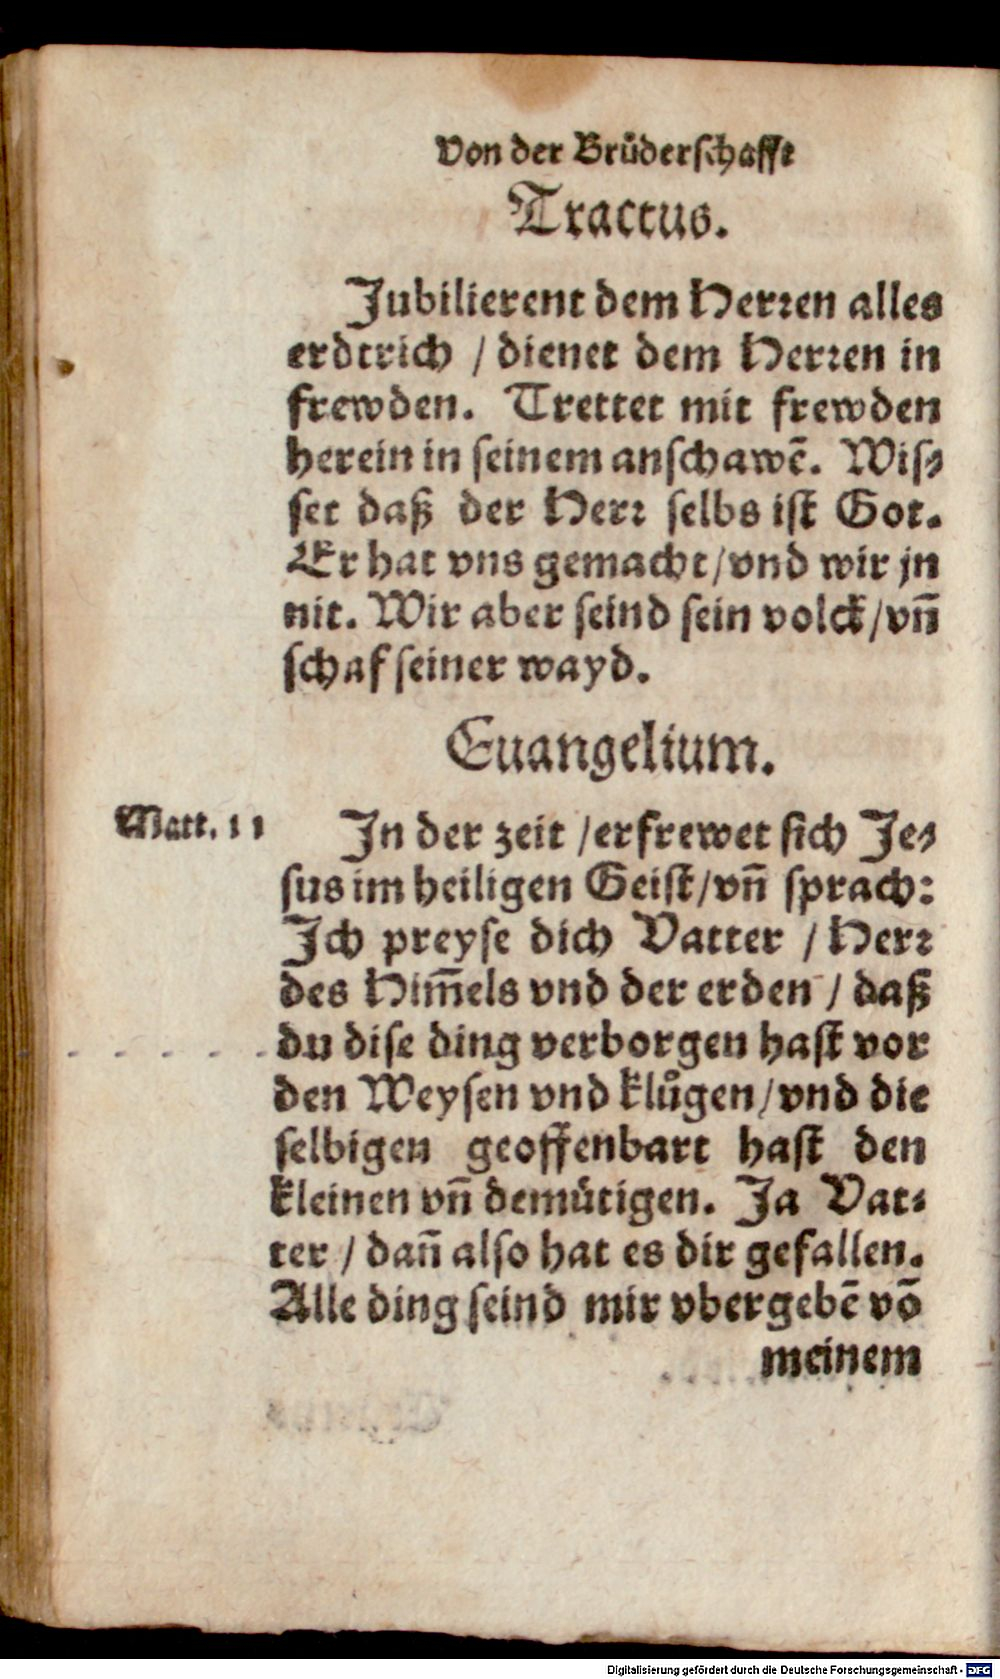 Von der Bruͤderschafft
Tractus.
Jubilierent dem Herꝛen alles
erdtrich / dienet dem Herꝛen in
frewden. Trettet mit frewden
herein in seinem anschawẽ. Wis⸗
set daß der Herꝛ selbs ist Got.
Er hat vns gemacht / vnd wir jn
nit. Wir aber seind sein volck / vñ
schaf seiner wayd.
Euangelium.
Matt. 11
In der zeit / erfrewet sich Je⸗
sus im heiligen Geist / vñ sprach:
Ich preyse dich Vatter / Herꝛ
des Him̃els vnd der erden / daß
du dise ding verborgen hast vor
den Weysen vnd kluͦgen / vnd die
selbigen geoffenbart hast den
kleinen vñ demuͤtigen. Ja Vat⸗
ter / dañ also hat es dir gefallen.
Alle ding seind mir vbergebẽ võ
meinem
Digitalisierung gefördert durch die Deutsche Forschungsgemeinschaft - DFG